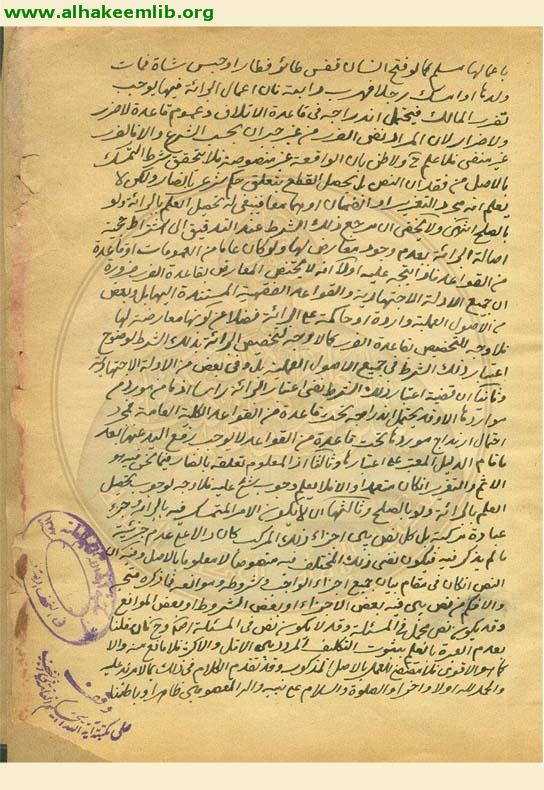 www.alhakeemlib.org
باعمالها مسلم كما لو فتح انسان قفس طائر فطار او حبس شاة فمات
ولدها او امسك رجلا فهرب دابته فان اعمال البرائة فيها يوجب
تضرر المالك فيحتمل اندراجه فى قاعدة الاتلاف وعموم قاعدة لا ضرر
ولا ضرار لان المراد نفى الضرر من غير جبران بحسب الشرع والا فالضرر
غير منفى فلا علم ح ولا ظن بان الواقعة غير منصوصة فلا يتحقق شرط التمسك
بالاصل من فقدان النص بل يحصل القطع بتعلق حكم شرعى بالضار ولكن لا
يعلم انه مجرد التعزير او الضمان او هما معا فينبغى له تحصيل العلم بالبرائة ولو
بالصلح انتهى ولا يخفى ان مرجع ذلك الشرط عند التدقيق الى اشتراط حجية
اصالة البرائة بعدم وجود معارض لها ولو كان عاما من العمومات او قاعدة
من القواعد
ان جميع الادلة الاجتهادية والقواعد الفقهية المستندة اليها بل وبعض
من الاصول العملية واردة او حاكمة على البرائة فضلا عن كونها معارضة لها
فلا وجه للتخصيص بقاعدة الضرر كما لا وجه لتخصيص البرائة بذلك الشرط لوضوح
اعتبار ذلك الشرط فى جميع الاصول العملية بل وفى بعض من الادلة الاجتهادية
وثانيا ان قضية اعتبار ذلك الشرط نفى اعتبار البرائة راسا اذ ما من مورد من
مواردها الا وقد يحتمل اندراجه تحت قاعدة من القواعد الكلية العامة فمجرد
احتمال اندراج موردها تحت قاعدة من القواعد لا يوجب رفع اليد عنها بعد
ما قام الدليل المعتبر على اعتبارها وثالثا ان المعلوم تعلقه بالضار فيما نحن فيه هو
الاثم والتعزير ان كان متعمدا والا فلا يعلم وجوب شىء عليه فلا وجه لوجوب تحصيل
العلم بالبرائة ولو بالصلح وثالثها ان لا يكون الامر المتمسك فيه بالبرائة جزء
عبادة مركبة بل كل نص بين اجزاء ذلك المركب كان دالا على عدم جزئية
ما لم يذكر فيه فيكون نفى ذلك المختلف فيه منصوصا لا معلوما بالاصل وفيه ان
النص ان كان فى مقام بيان جميع اجزاء الواجب فى شروطه وموانعه فما ذكره متين
والا فكم من نص بين فيه بعض الاجزاء او بعض الشروط او بعض الموانع
وقد يكون نص مجمل فى المسئلة وقد لا يكون نص فى المسئلة اصلا وح فان قلنا
بعدم العبرة بالعلم بثبوت التكليف المردد بين الاقل والاكثر فلا مانع منه والا
كما هو الاقوى فلا مقتضى للعمل بالاصل المذكور وقد تقدم الكلام فى ذلك بما لا مزيد عليه
والحمد لله اولا واخرا والصلوة والسلام على نبيه واله المعصومين ظاهرا وباطنا
وقف